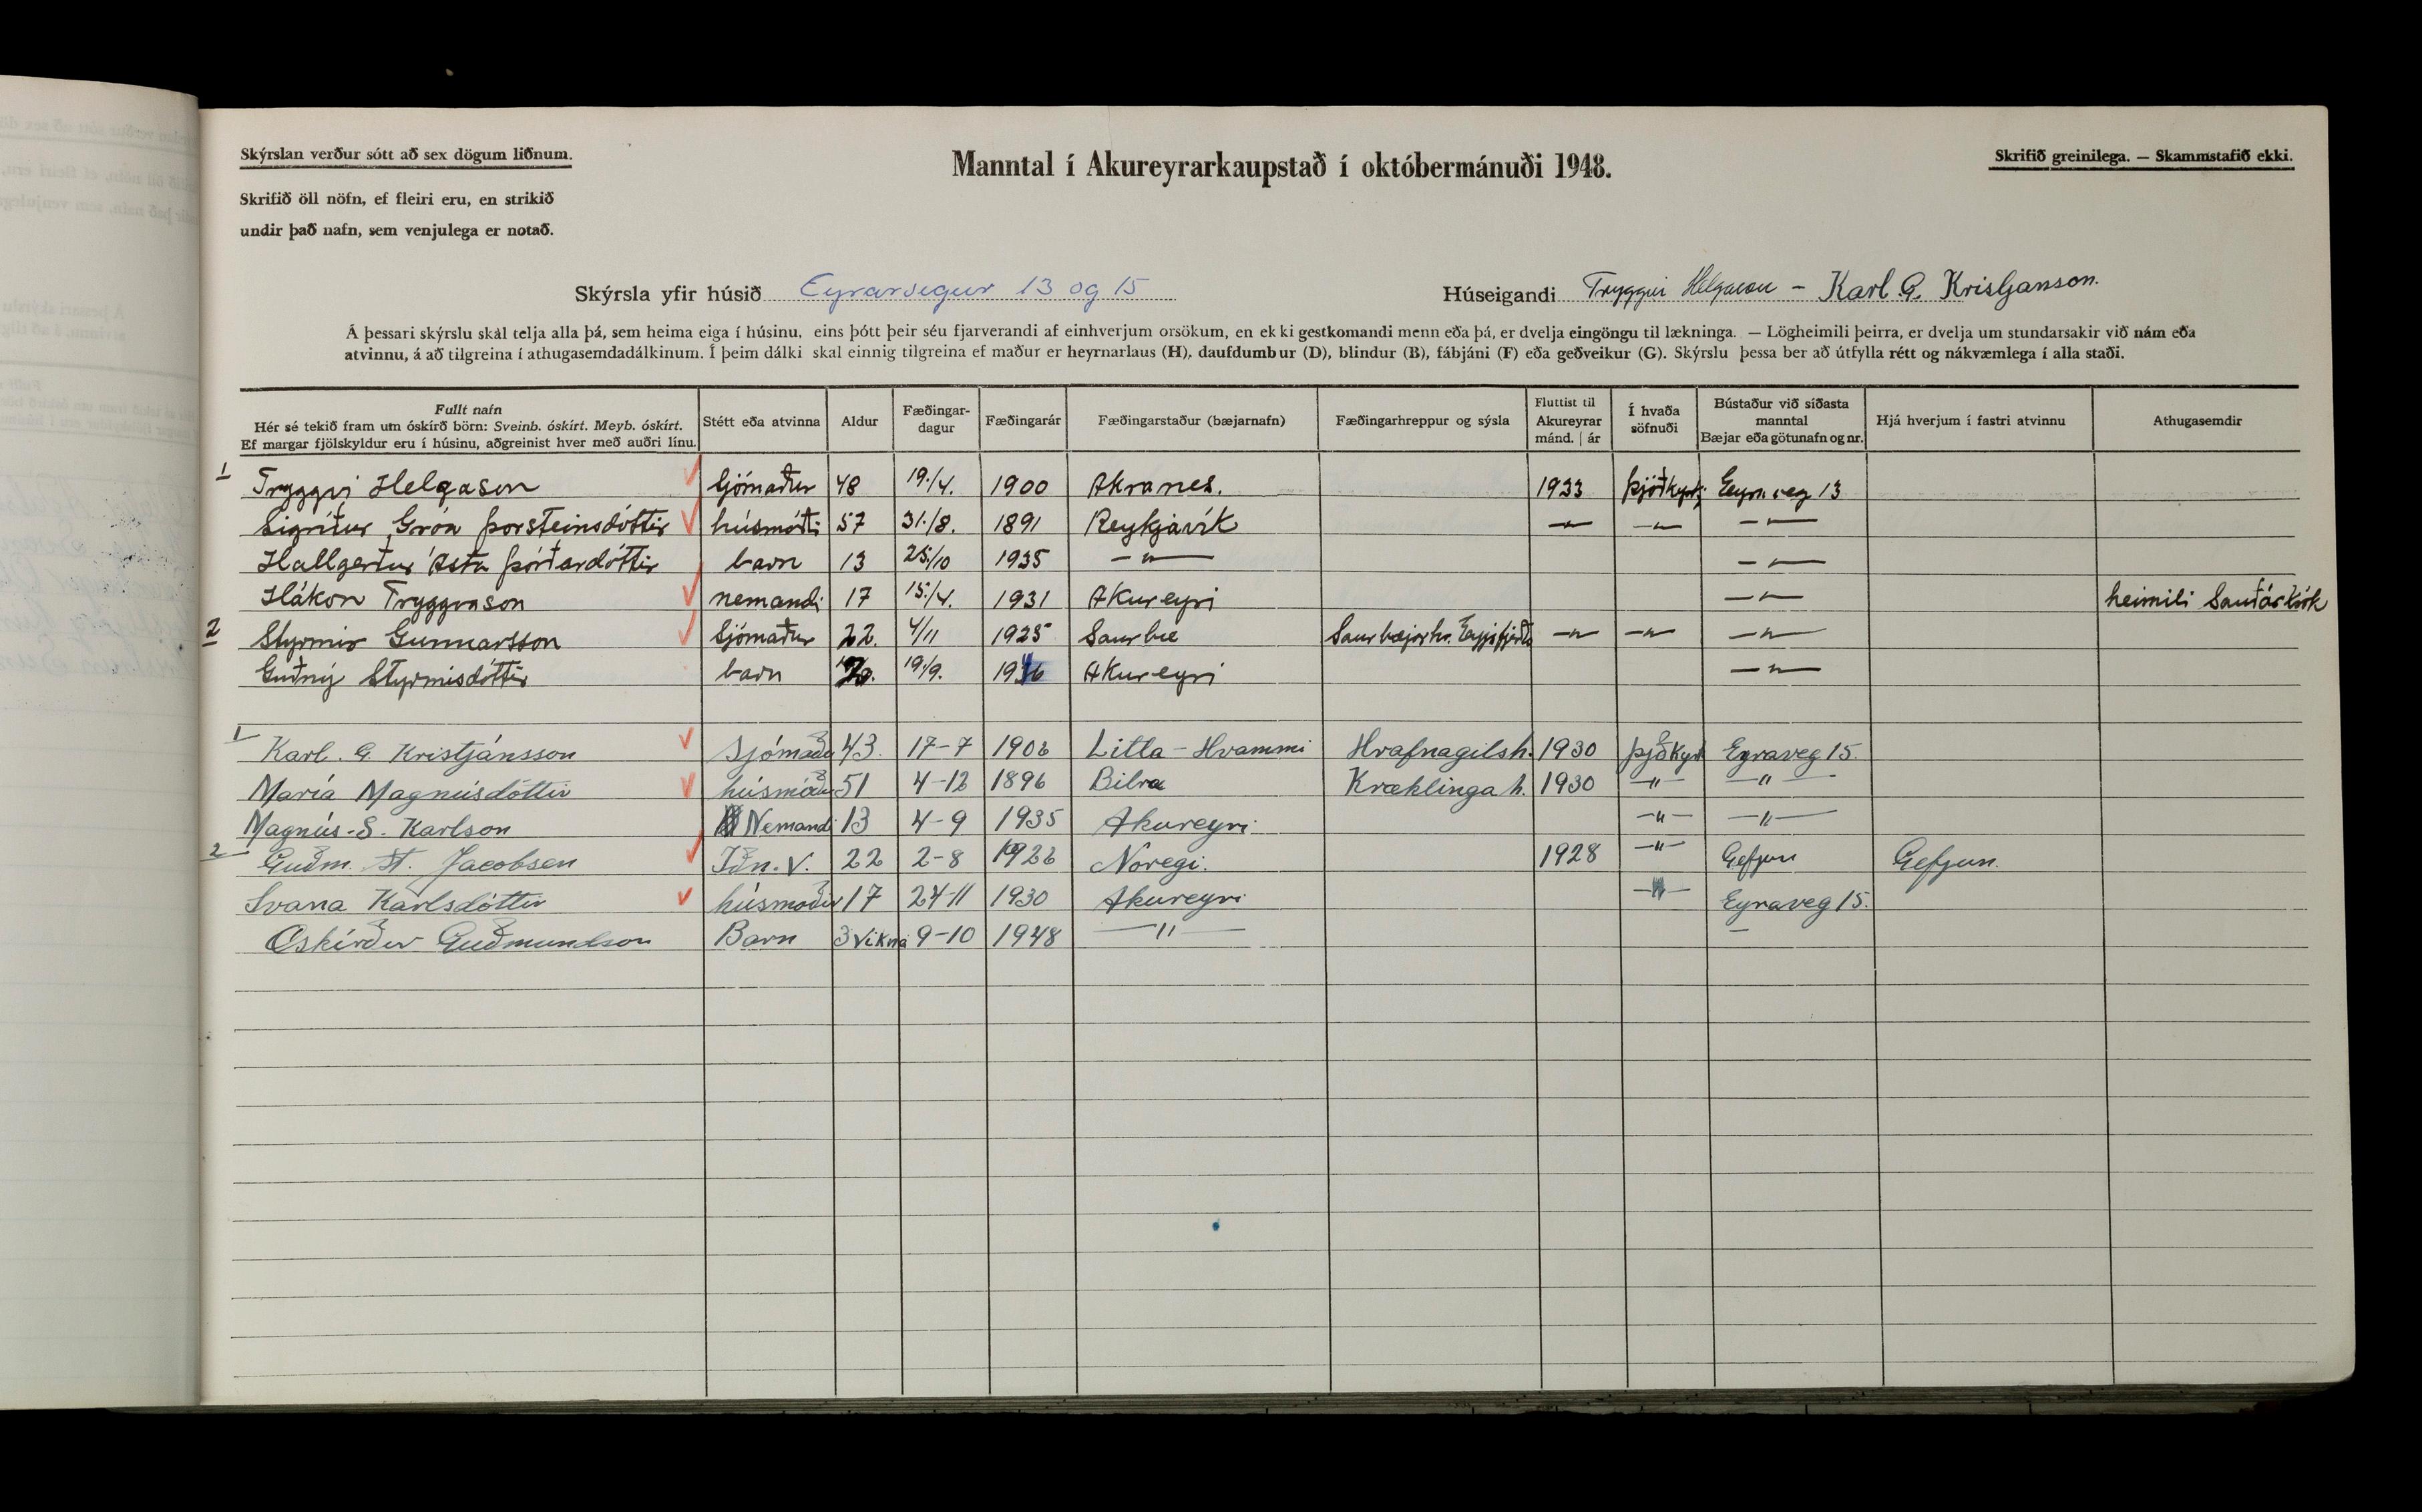 Skýrslan verður sótt að sex dögum liðnum.
Skrifið öll nöfn, ef fleiri eru, en strikið
undir það nafn, sem venjulega er notað.
Manntal í Akureyrarkaupstað í októbermánuði 1948.
Skrifið greinilega. — Skammstafið ekki.
Skýrsla yfir húsið Eyrarvegur 13 og 15
Húseigandi Tryggvi Helgason - Karl G. Kristjanson.
Á þessari skýrslu skal telja alla þá, sem heima eiga í húsinu, eins þótt þeir séu fjarverandi af einhverjum orsökum, en ekki gestkomandi menn eða þá, er dvelja eingöngu til lækninga. — Lögheimili þeirra, er dvelja um stundarsakir við nám eða
atvinnu, á að tilgreina í athugasemdadálkinum. Í þeim dálki skal einnig tilgreina ef maður er heyrnarlaus (H), daufdumbur (D), blindur (B), fábjáni (F) eða geðveikur (G). Skýrslu þessa ber að útfylla rétt og nákvæmlega í alla staði.
Fullt nafn
Hér sé tekið fram um óskírð börn: Sveinb. óskírt. Meyb. óskírt.
Ef margar fjölskyldur eru í húsinu, aðgreinist hver með auðri línu.
Stétt eða atvinna
Aldur
Fæðingar-
dagur
Fæðingarár
Fæðingarstaður (bæjarnafn)
Fæðingarhreppur og sýsla
Fluttist til
Akureyrar
mánd. | ár
Í hvaða
söfnuði
Bústaður við síðasta
manntal
Bæjar eða götunafn og nr.
Hjá hverjum í fastri atvinnu
Athugasemdir
1 Tryggvi Helgason Sjómaður 48 19./4. 1900 Akranes. 1933 Þjóðkyrkj Eyraveg 13
Sigríður Gróa Þorsteinsdóttir húsmóðir 57 31./8. 1891 Reykjavík —"— —"— —"—
Hallgerður Ásta Þórðardóttir barn 13 25/10 1935 —"— —"—
Hákon Tryggvason nemandi 17 15./4. 1931 Akureyri —"— heimili Sauðárkrók
2 Styrmir Gunnarsson Sjómaður 22. 4/11 1925 Saurbæ Saurbæjarhr. Eyjafjarð —"— —"— —"—
Guðný Styrmisdóttir barn 19./9. Akureyri —"—
1 Karl. G. Kristjánsson Sjómaður 43. 17-7 1906 Litla-Hvammi Hrafnagilsh. 1930 Þjóðkyrk Eyraveg 15.
María Magnúsdóttir húsmóðir 51 4-12 1896 Bitra Kræklinga h. 1930 —"— —"—
Magnús-S. Karlson Nemandi 13 4-9 1935 Akureyri —"— —"—
2 Guðm. St. Jacobsen Iðn.v. 22 2-8 1926 Noregi. 1928 —"— Gefjun Gefjun.
Svana Karlsdóttir húsmóðir 17 24-11 1930 Akureyri —"— Eyraveg 15.
Óskírður Guðmundson Barn 3 vikna 9-10 1948 —"— —